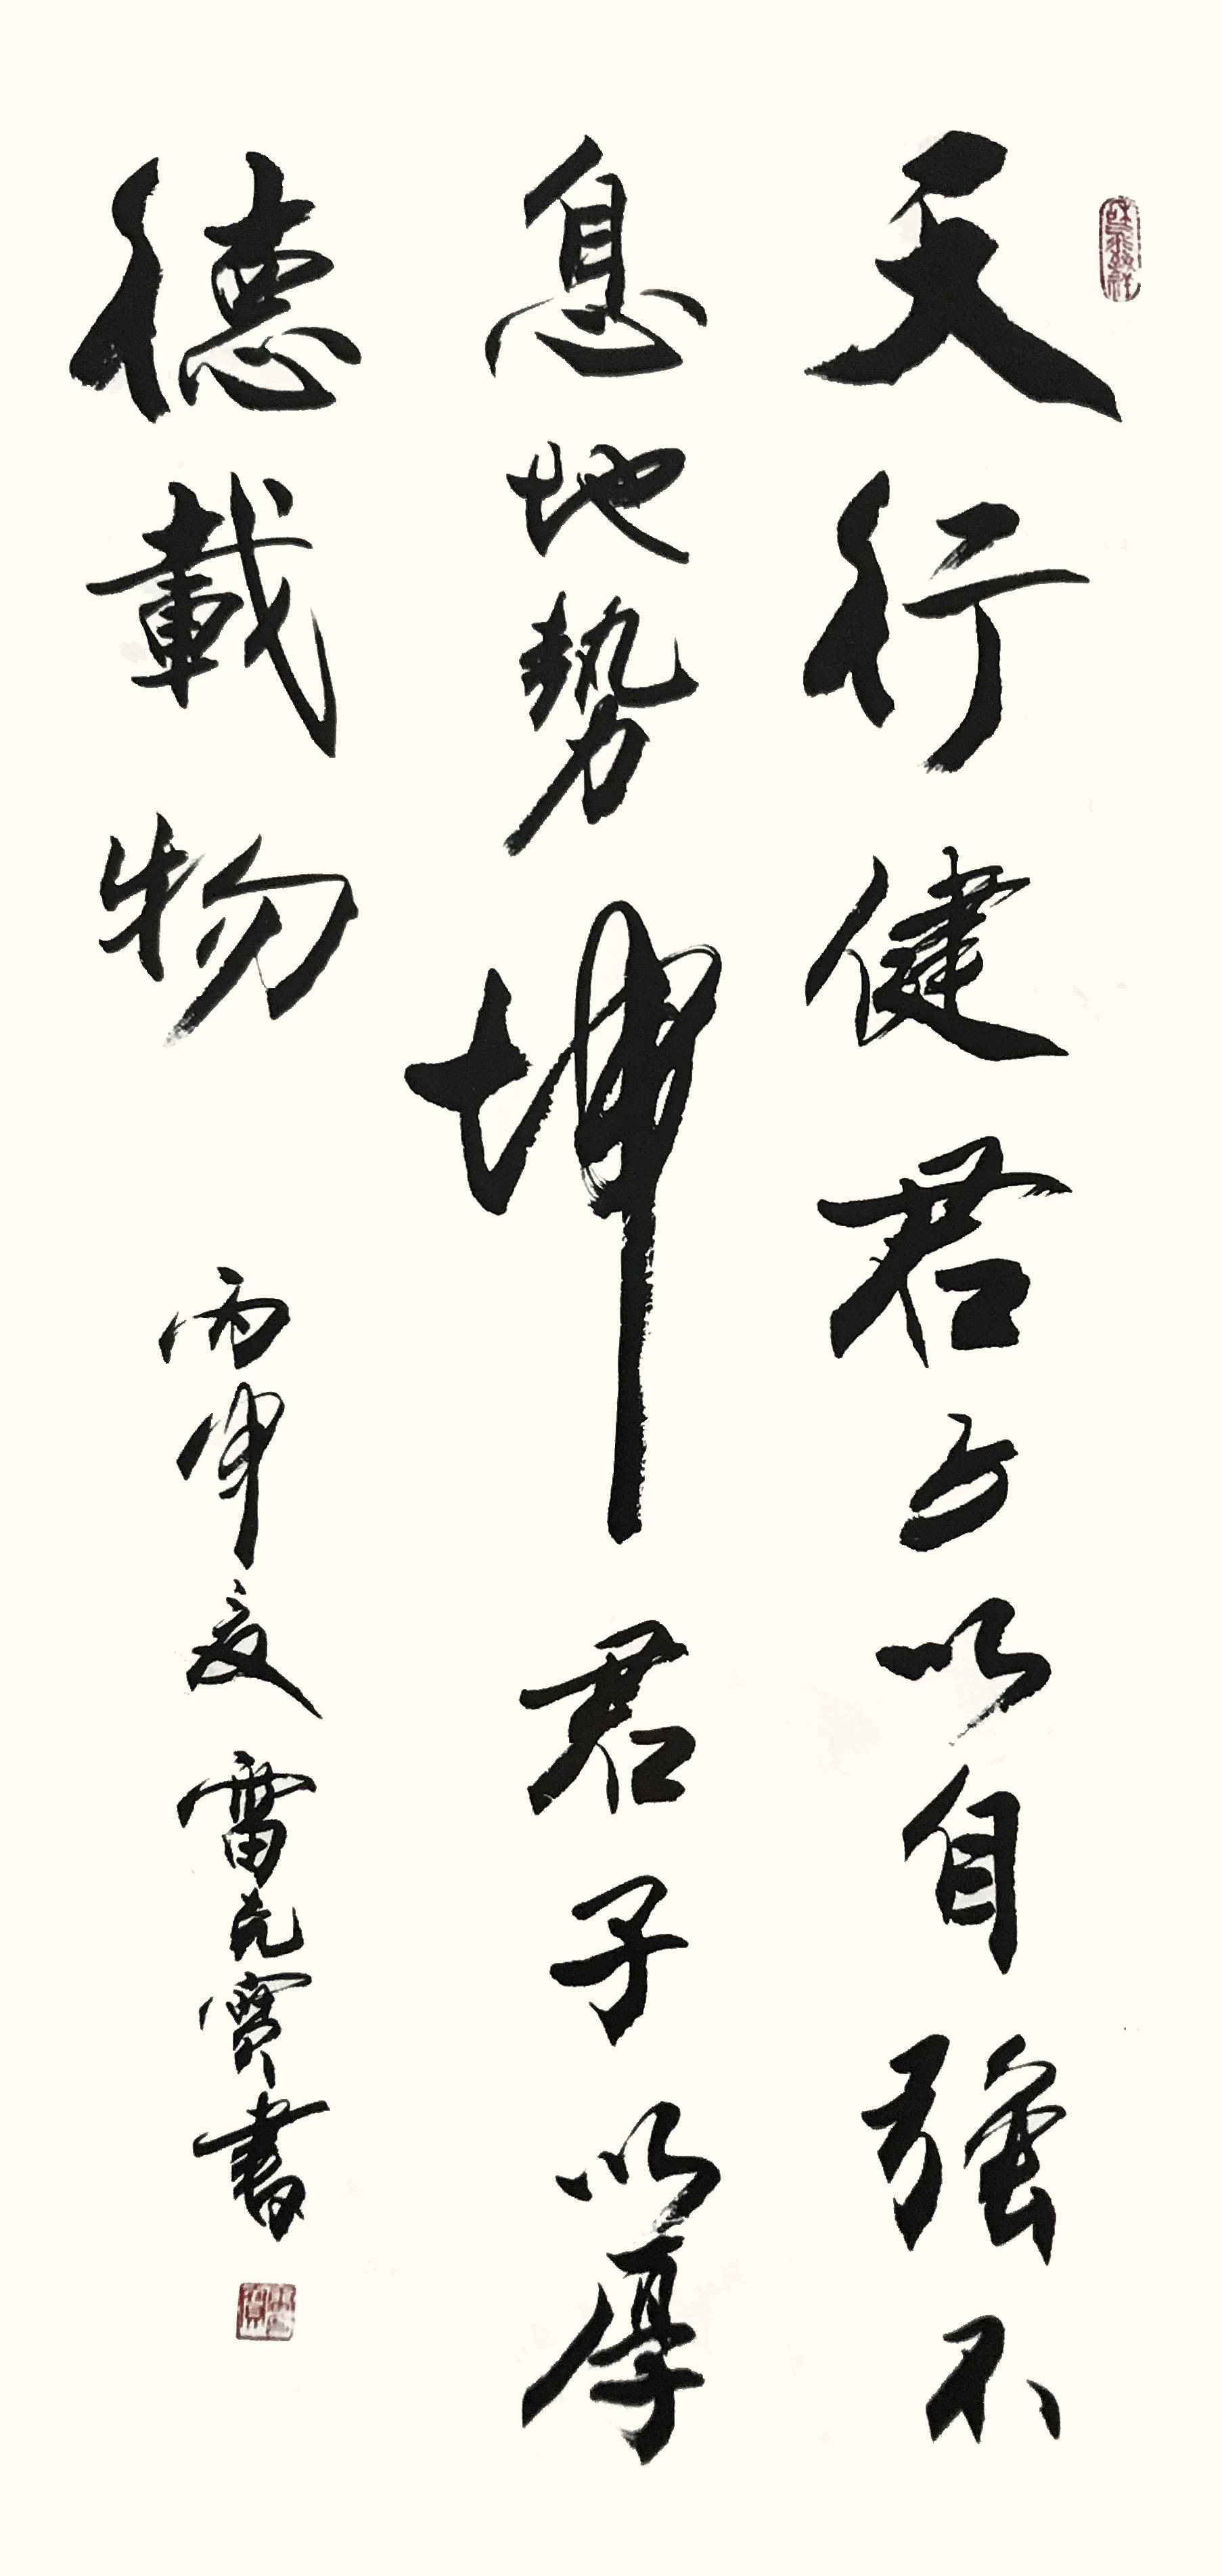 天行健君子以自強不
息地勢坤君子以厚
德載物 丙申夏 雷克寶書